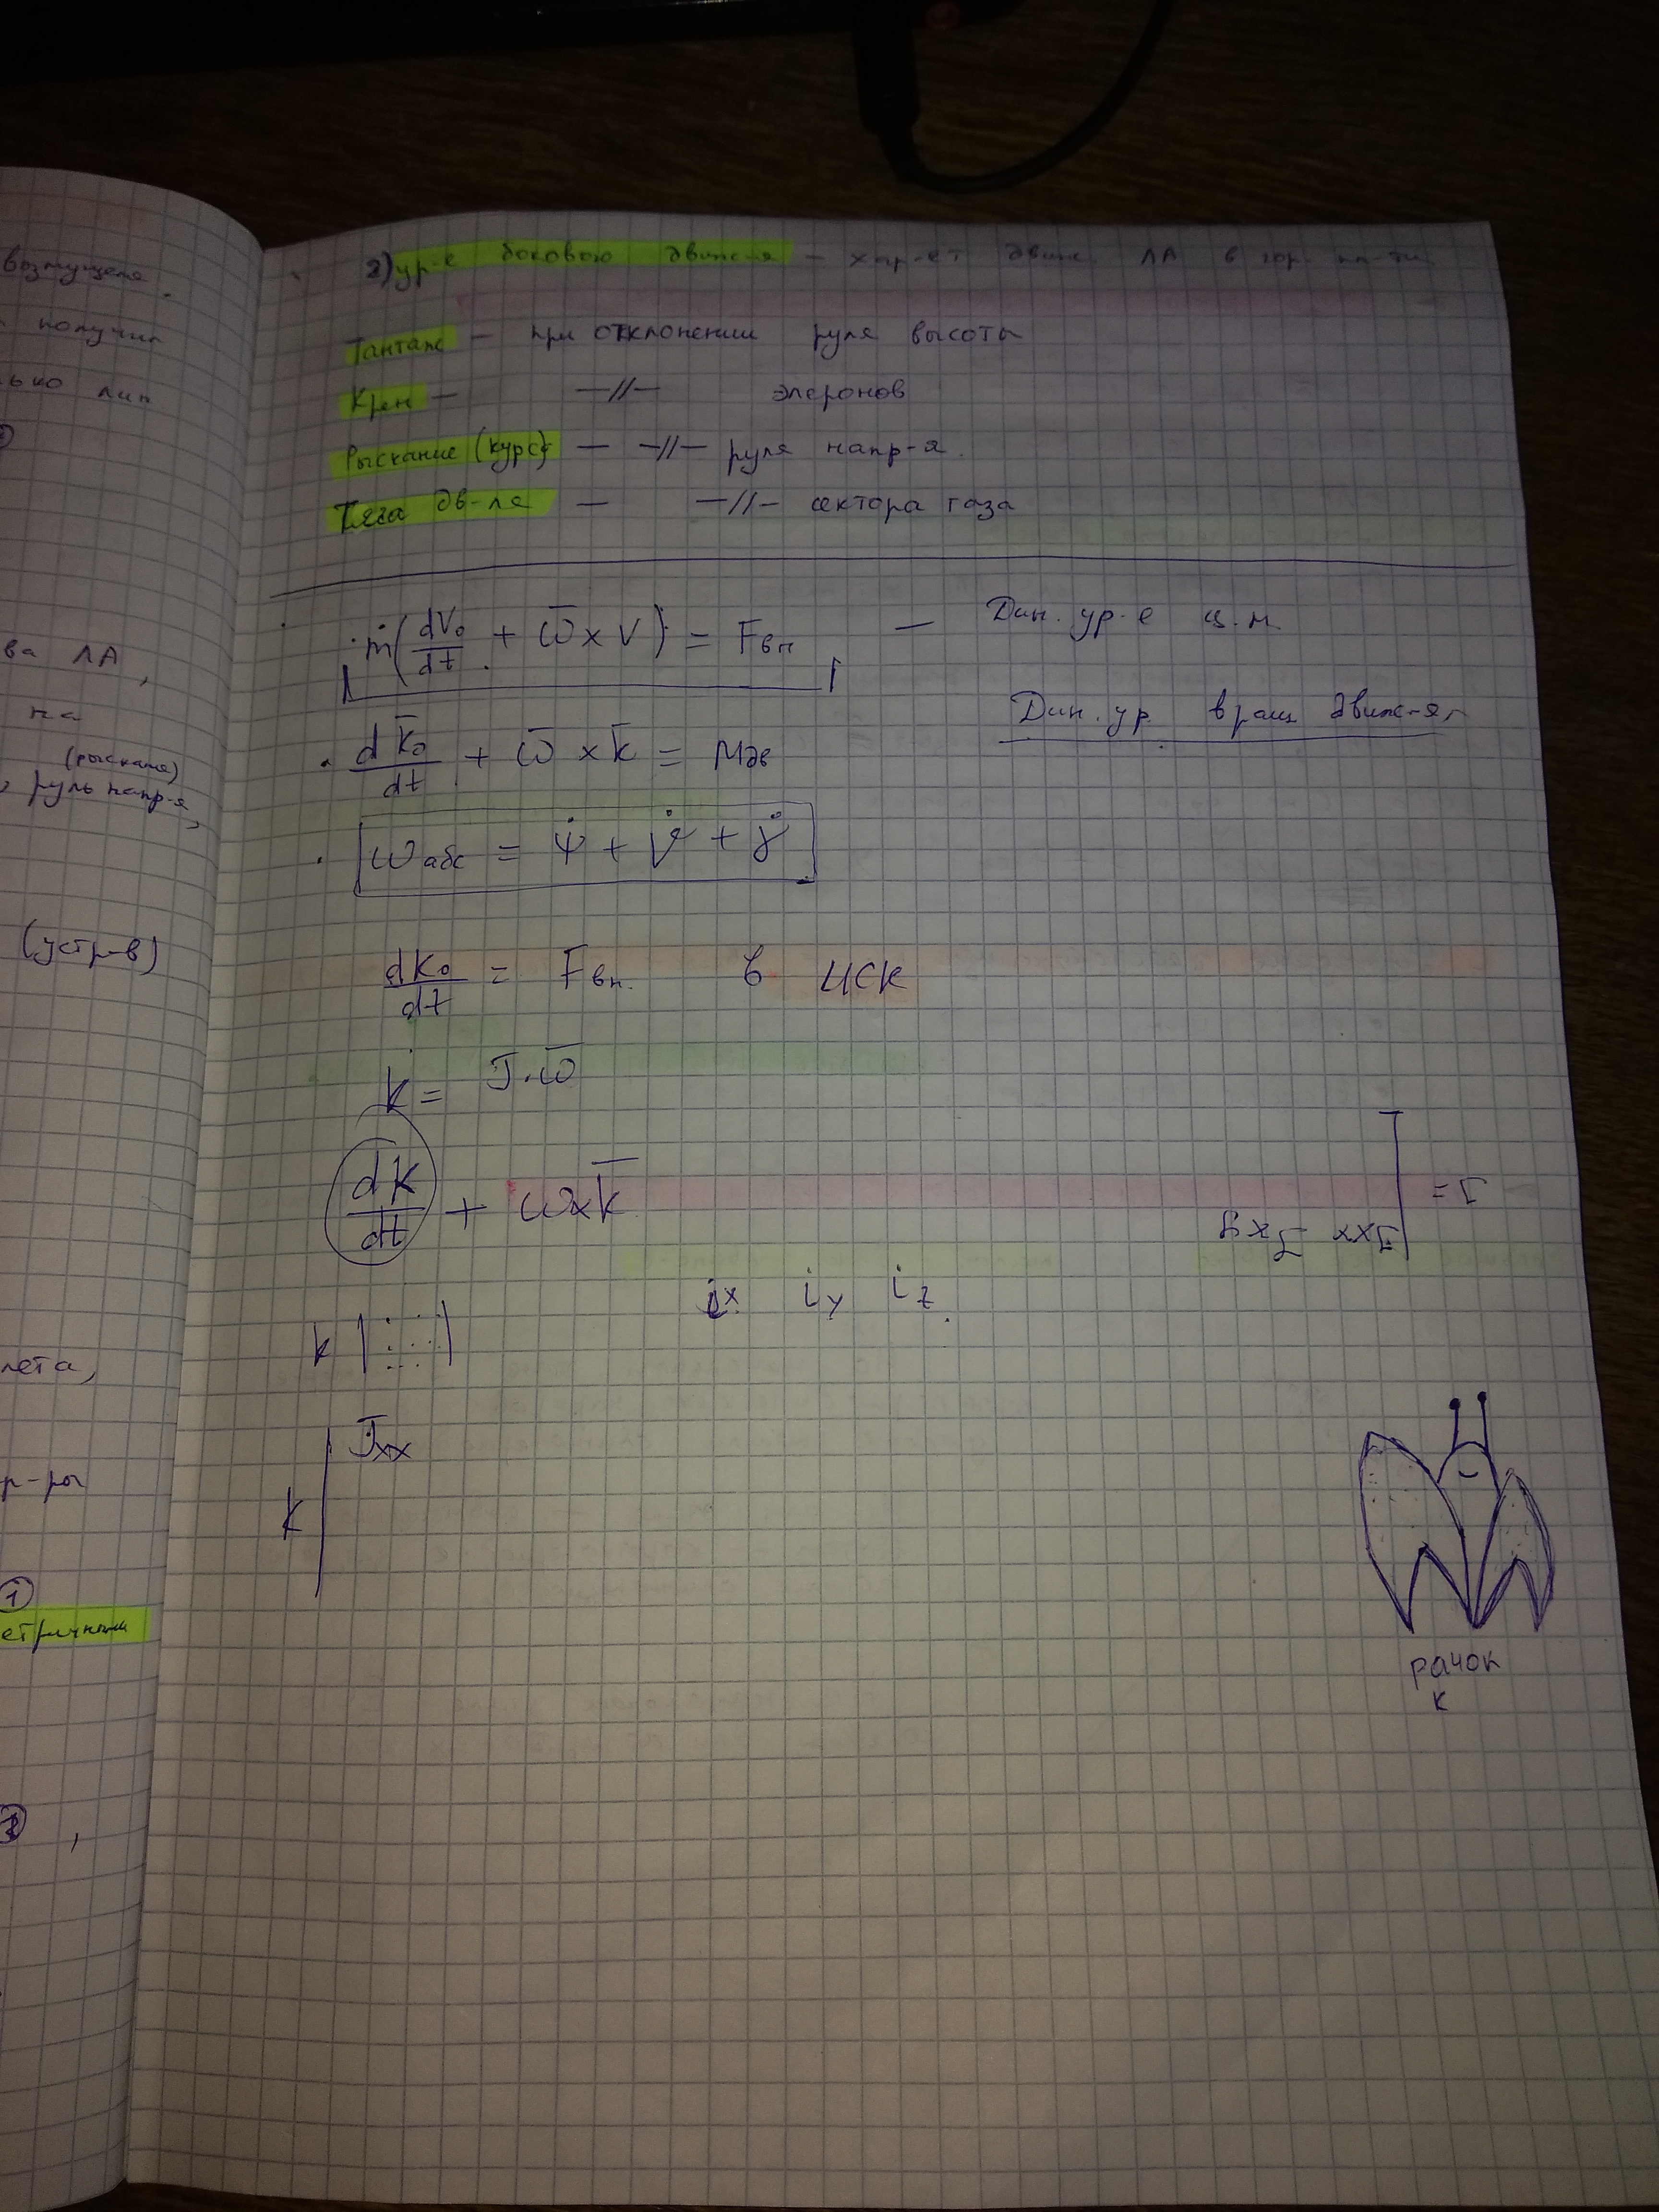 возмущения.
получил
лин
ва ЛА,
на
(рыскания)
руль напр-я,
(устр-в)
лета,
р-ры
①
етричными
2) ур-е бокового движ-я – хар-ет движ. ЛА в гор. пл-ти
Тангаж – при отклонении руля высоты
Крен – –//– элеронов
Рыскание (курс) – –//– руля напр-я.
Тяга дв-ля – –//– сектора газа
m(dV₀/dt + ω̅ x V) = Fвн – Дин. ур-е ц.м.
Дин. ур. вращ движ-я
dK̅₀/dt + ω̅ x k̅ = Mдв
ωабс = ψ̇ + ϑ̇ + γ̇
dK₀/dt = Fвн. в ИСК
k = J·ω̅
dk/dt + ωxk̅
J =
Jxx Jxy
ix iy iz
k
Jxx
k
рачок
к